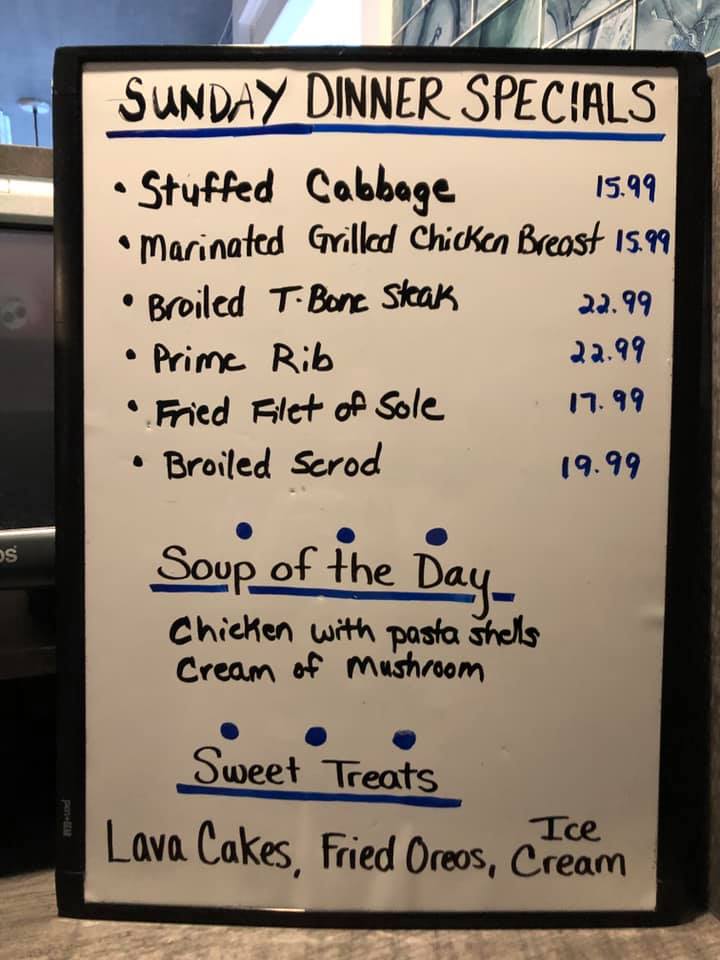 SUNDAY DINNER SPECIALS
• Stuffed Cabbage 15.99
• Marinated Grilled Chicken Breast 15.99
• Broiled T-Bone Steak 22.99
• Prime Rib 22.99
• Fried Filet of Sole 17.99
• Broiled Scrod 19.99
Soup of the Day
Chicken with pasta shells
Cream of Mushroom
Sweet Treats
Lava Cakes, Fried Oreos, Ice Cream